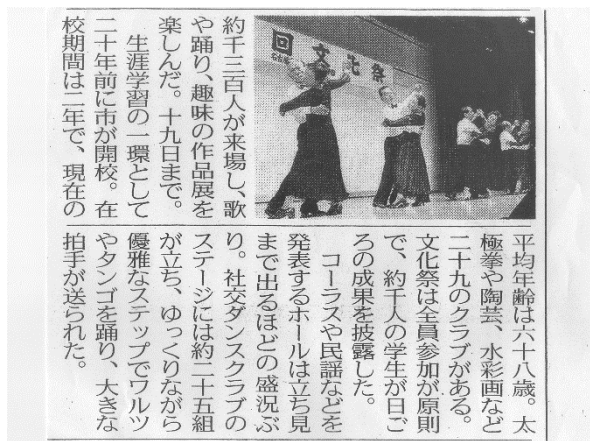 回 文化祭
約千三百人が来場し、歌
や踊り、趣味の作品展を
楽しんだ。十九日まで。
生涯学習の一環として
二十年前に市が開校。在
校期間は二年で、現在の
平均年齢は六十八歳。太
極拳や陶芸、水彩画など
二十九のクラブがある。
文化祭は全員参加が原則
で、約千人の学生が日ご
ろの成果を披露した。
コーラスや民謡などを
発表するホールは立ち見
まで出るほどの盛況ぶ
り。社交ダンスクラブの
ステージには約二十五組
が立ち、ゆっくりながら
優雅なステップでワルツ
やタンゴを踊り、大きな
拍手が送られた。